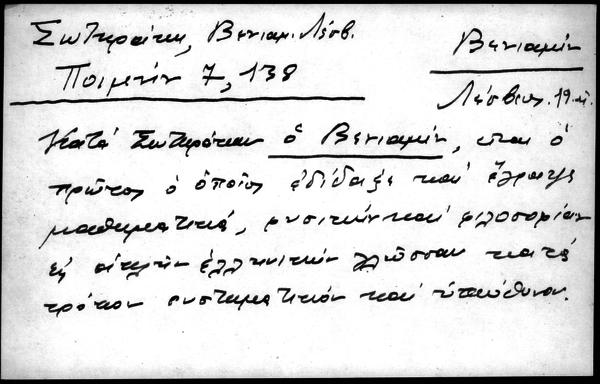 Σωτηράκη, Βενιαμ. Λέσβ.
Ποιμήν 7, 138
Βενιαμίν
Λέσβιος. 19 αἰ.
Κατά Σωτηράκην ὁ Βενιαμίν, εἶναι ὁ
πρῶτος ὁ ὁποῖος ἐδίδαξε καί ἔγραψε
μαθηματικά, φυσικήν καί φιλοσοφίαν
εἰς ἁπλῆν ἑλληνικήν γλῶσσαν κατά
τρόπον συστηματικόν καί ὑπεύθυνον.